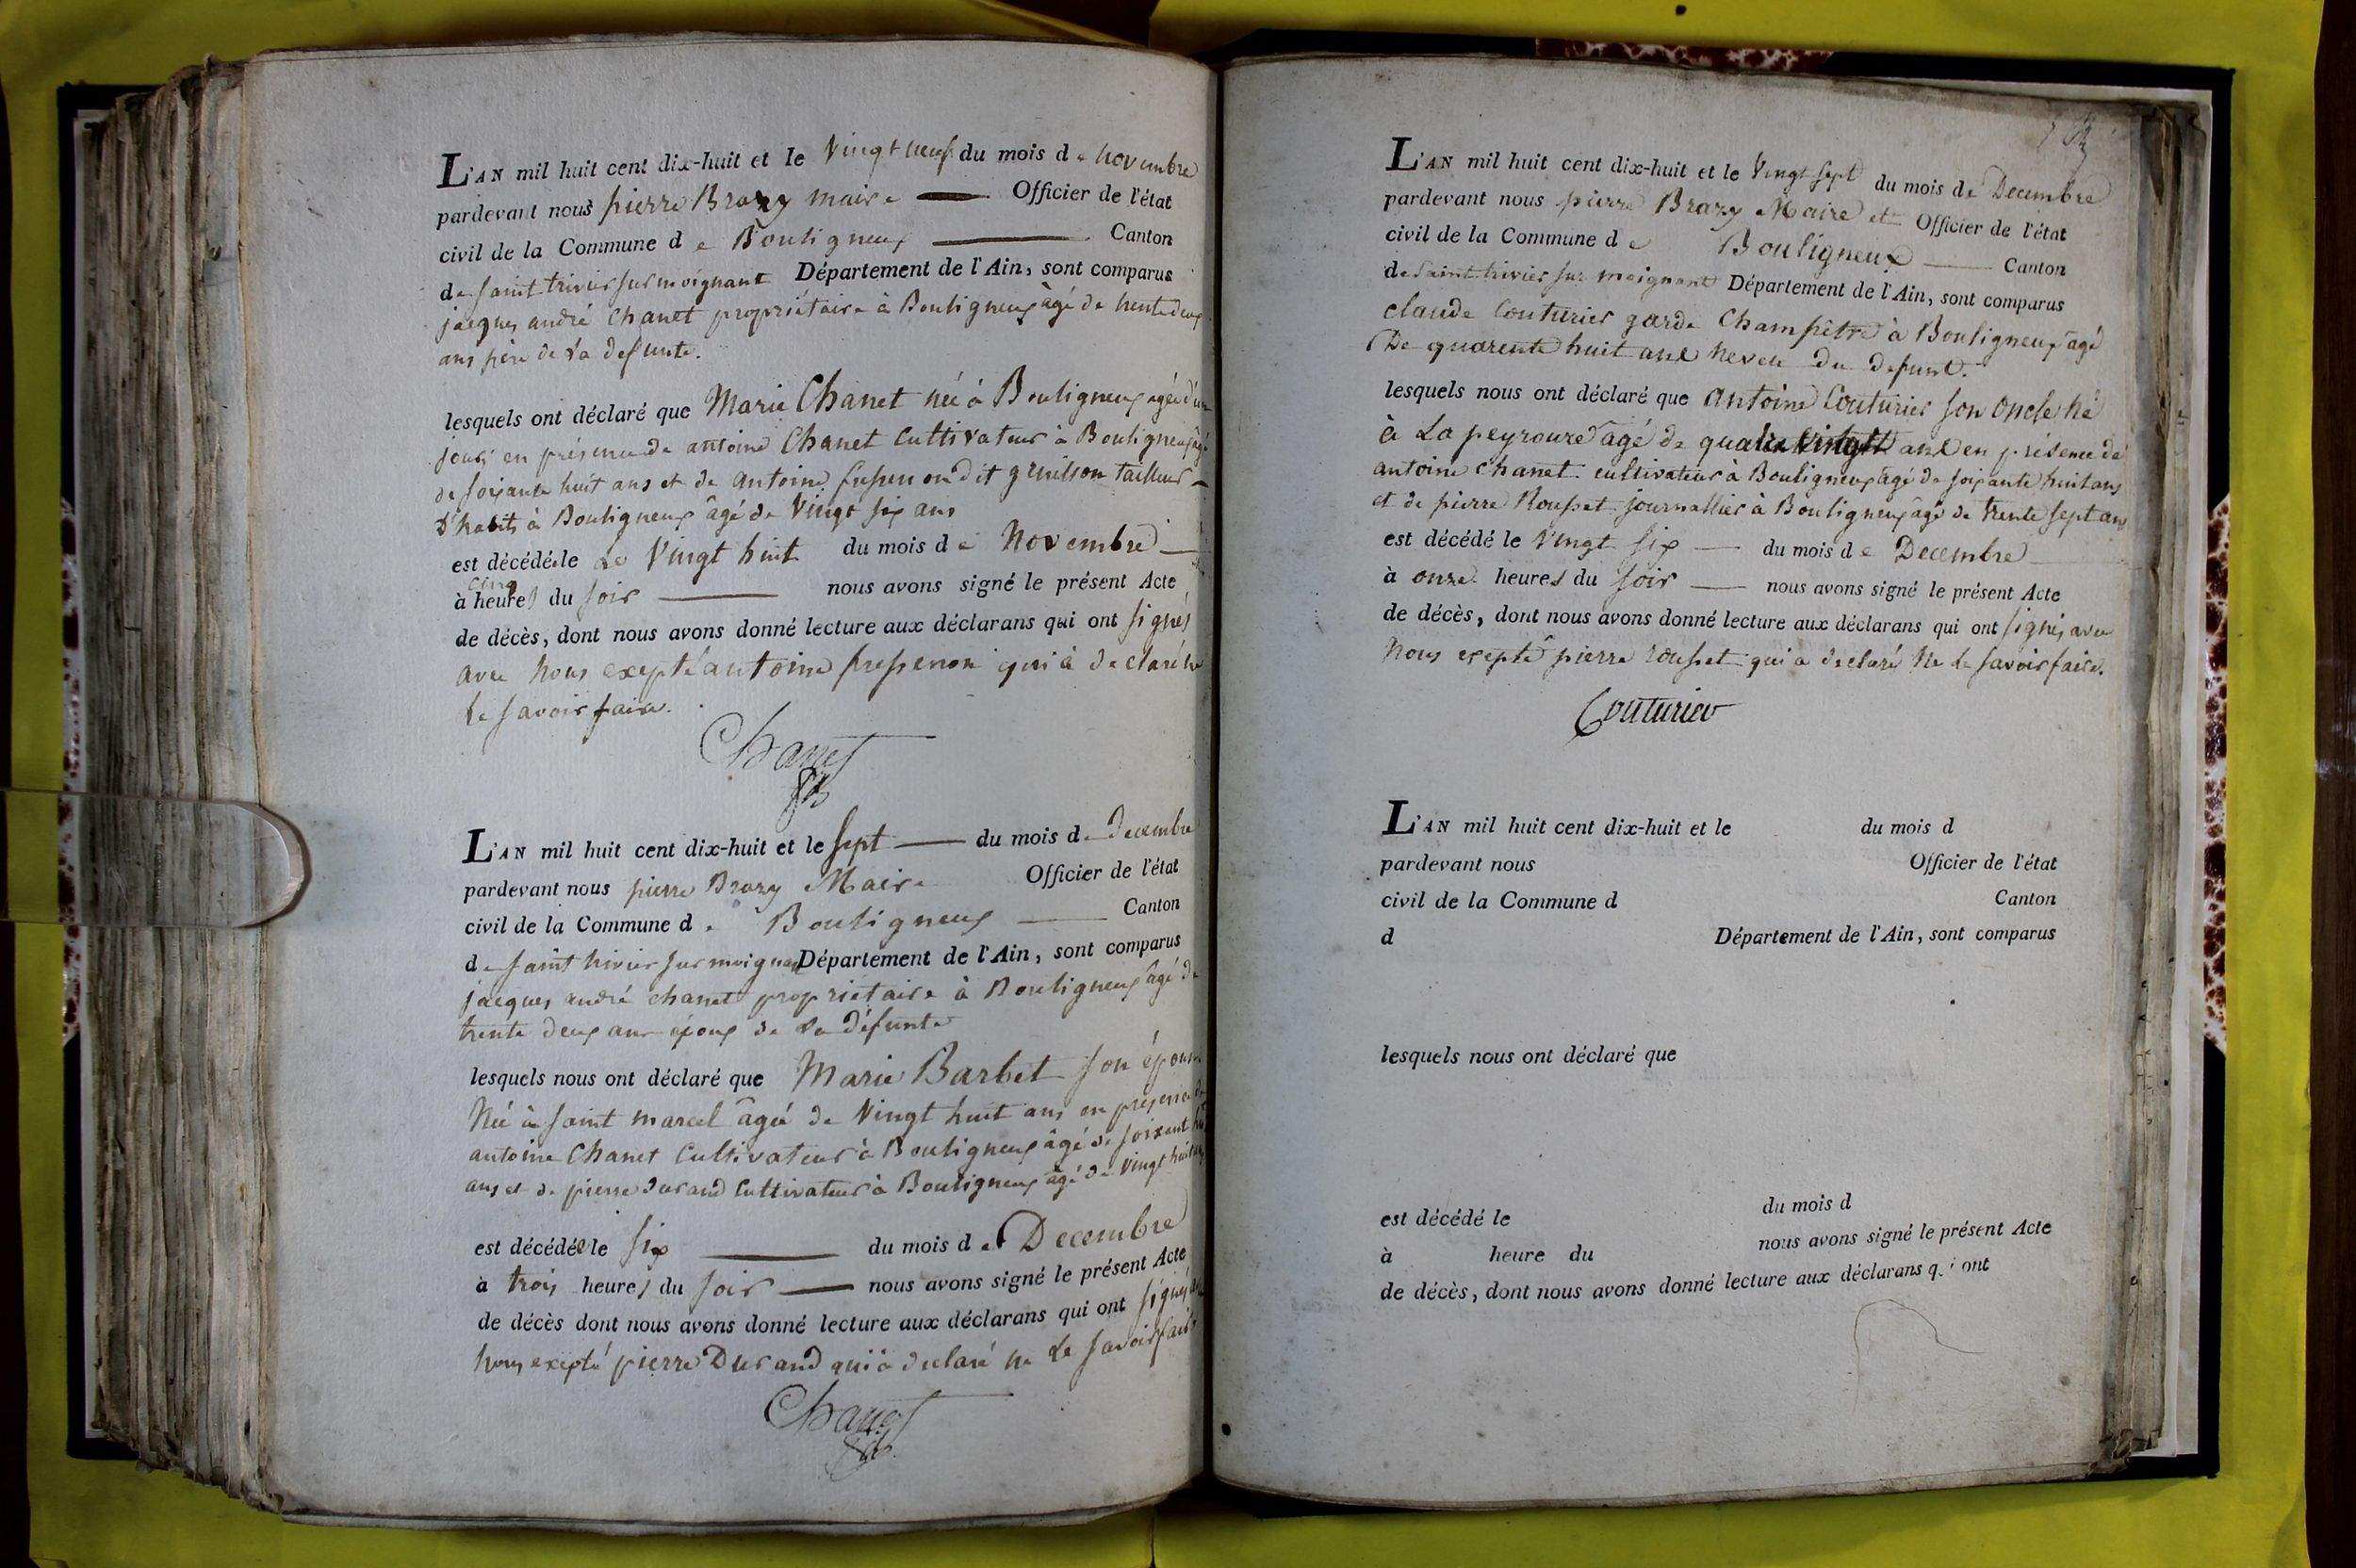 L'AN mil huit cent dix-huit et le Vingt neuf du mois de novembre
pardevant nous pierre Brazy maire Officier de l'état
civil de la Commune de Bouligneux Canton
de saint trivier sur moignant Département de l'Ain, sont comparus
jacques andré Chanet propriétaire à Bouligneux âgé de trente deux
ans père de la defunte.
lesquels ont déclaré que Marie Chanet née à Bouligneux agée d'un
jour en présence de antoine Chanet Cultivateur à Bouligneux âgé
de soixante huit ans et de antoine dit tailleur
d'habits à Bouligneux âgé de Vingt six ans
est décédée le Le Vingt huit du mois de Novembre
cinq
à heures du soir nous avons signé le présent Acte
de décès, dont nous avons donné lecture aux déclarans qui ont signés
avec nous exepté antoine qui à declaré ne
le savoir faire.
Chanet
L'AN mil huit cent dix-huit et le sept du mois de Decembre
pardevant nous pierre Brazy Maire Officier de l'état
civil de la Commune de Bouligneux Canton
de saint trivier sur moignant Département de l'Ain, sont comparus
jacques andré chanet proprietaire à Bouligneux âgé de
trente deux ans époux de La défunte
lesquels nous ont déclaré que Marie Barbet son épouse
Née à saint marcel âgée de Vingt huit ans en présence de
antoine Chanet Cultivateur à Bouligneux âgé de soixante huit
ans et de pierre durand Cultivateur à Bouligneux âgé de vingt huit ans
est décédée le six du mois de Decembre
à trois heures du soir nous avons signé le présent Acte
de décès dont nous avons donné lecture aux déclarans qui ont signés avec
nous exepté pierre Durand qui à declaré ne Le savoir faire
Chanet
L'AN mil huit cent dix-huit et le Vingt sept du mois de Decembre
pardevant nous pierre Brazy Maire et Officier de l'état
civil de la Commune de Bouligneux Canton
de saint trivier sur moignant Département de l'Ain, sont comparus
claude Couturier garde Champêtre à Bouligneux âgé
De quarente huit ans neveu du defunt.
lesquels nous ont déclaré que Antoine Couturier son Oncle né
à La peyrouze âgé de quatre vingt ans en présence de
antoine chanet cultivateur à Bouligneux âgé de soixante huit ans
et de pierre Rousset journallier à Bouligneux âgé de trente sept ans
est décédé le Vingt six du mois de Decembre
à onze heures du soir nous avons signé le présent Acte
de décès, dont nous avons donné lecture aux déclarans qui ont signés avec
Nous exepté pierre rousset qui a declaré Ne le savoir faire.
Couturier
L'AN mil huit cent dix-huit et le du mois d
pardevant nous Officier de l'état
civil de la Commune d Canton
d Département de l'Ain, sont comparus
lesquels nous ont déclaré que
est décédé le du mois d
à heure du nous avons signé le présent Acte
de décès, dont nous avons donné lecture aux déclarans qui ont